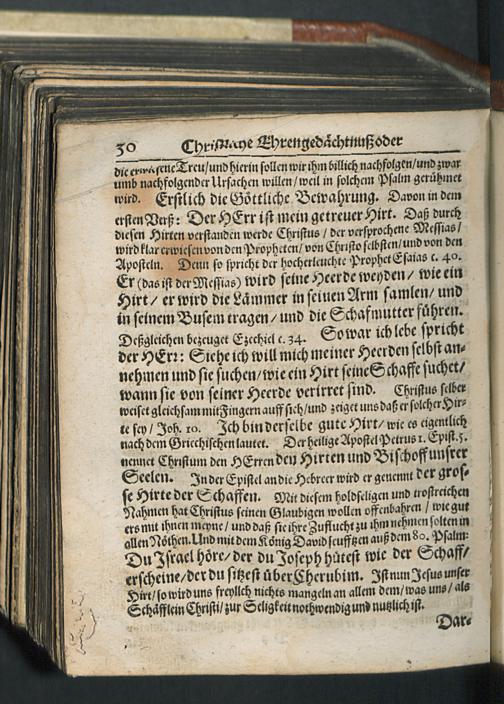 30 Christliche Ehrengedächtnuß oder
die erwiesene Treu/und hierin sollen wir ihm billich nachfolgen/und zwar
umb nachfolgender Ursachen willen/weil in solchem Psalm gerühmet
wird. Erstlich die Göttliche Bewahrung. Davon in dem
ersten Verß: Der HErr ist mein getreuer Hirt. Daß durch
diesen Hirten verstanden werde Christus / der versprochene Messias/
wird klar erwiesen von den Propheten/von Christo selbsten/und von den
Aposteln. Denn so spricht der hocherleuchte Prophet Esaias c. 40.
Er (das ist der Messias) wird seine Heerde weyden/ wie ein
Hirt/ er wird die Lämmer in seinen Arm samlen/ und
in seinem Busem tragen/ und die Schafmutter führen.
Deßgleichen bezeuget Ezechiel c. 34. So war ich lebe spricht
der HErr: Siehe ich will mich meiner Heerden selbst an-
nehmen und sie suchen/wie ein Hirt seine Schaffe suchet/
wann sie von seiner Heerde verirret sind. Christus selber
weiset gleichsam mit Fingern auff sich/und zeiget uns daß er solcher Hir-
te sey/ Joh. 10. Ich bin derselbe gute Hirt/ wie es eigentlich
nach dem Griechischen lautet. Der heilige Apostel Petrus 1. Epist. 5.
nennet Christum den HErren den Hirten und Bischoff unsrer
Seelen. In der Epistel an die Hebreer wird er genennt der gros-
se Hirte der Schaffen. Mit diesem holdseligen und trostreichen
Nahmen hat Christus seinen Glaubigen wollen offenbahren / wie gut
ers mit ihnen meyne/ und daß sie ihre Zuflucht zu ihm nehmen solten in
allen Nöthen. Und mit dem König David seufftzen auß dem 80. Psalm:
Du Israel höre/ der du Joseph hütest wie der Schaff/
erscheine/der du sitzest über Cherubim. Ist nun Jesus unser
Hirt/ so wird uns freylich nichts mangeln an allem dem/was uns/ als
Schäfflein Christi/ zur Seligkeit nothwendig und nutzlich ist.
Dar-